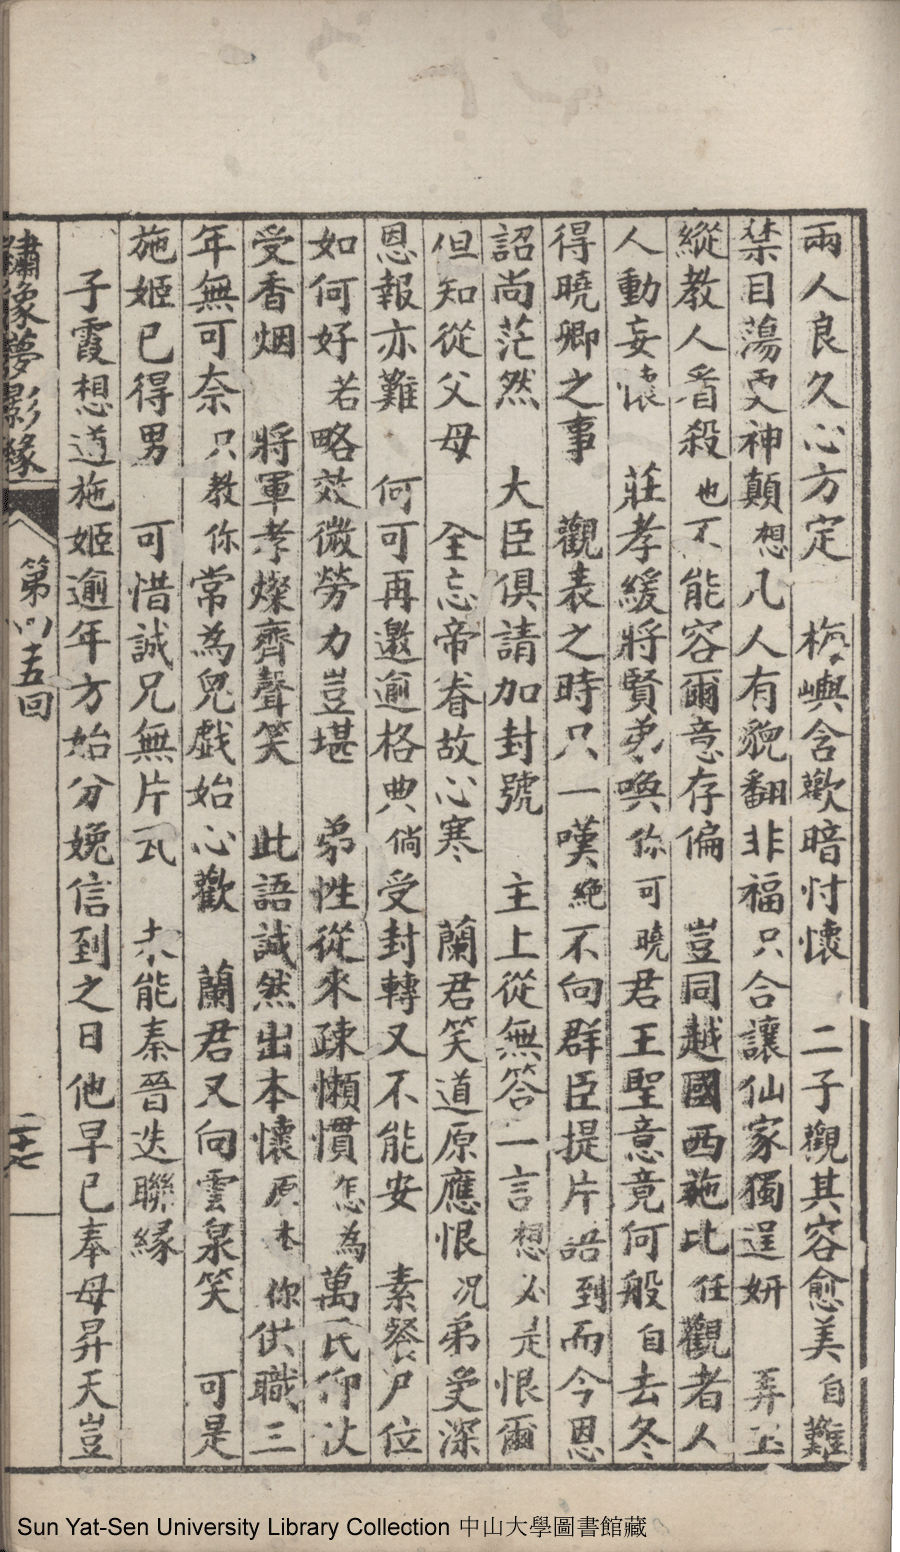 兩人良久心方定　梅嶼含歡暗忖懷　二子觀其容愈美自難
禁目蕩更神顛想凡人有貌翻非福只合讓仙家獨逞妍　弄玉
縱教人看殺也不能容爾意存偏　豈同越國西施比任觀者人
人動妄懷　莊孝緩將賢弟喚你可曉君王聖意竟何般自去冬
得曉卿之事　觀表之時只一嘆絕不向群臣提片語到而今恩
詔尚茫然　大臣俱請加封號　主上從無答一言想必是恨爾
但知從父母　全忘帝眷故心寒　蘭君笑道原應恨况弟受深
恩報亦難　何可再邀逾格典倘受封轉又不能安　素餐尸位
如何好若略效微勞力豈堪　弟性從來疎懶慣怎為萬民仰沐
受香烟　將軍孝燦齊聲笑　此語誠然出本懷原本你供職三
年無可奈只教你常為兒戲始心歡　蘭君又向雲泉笑　可是
施姬已得男　可惜誠兄無片瓦　未能秦晉迭聯緣
子霞想道施姬逾年方始分娩信到之日他早已奉母昇天豈
繡像夢影緣
第四十五回
二十七
Sun Yat-Sen University Library Collection 中山大學圖書館藏